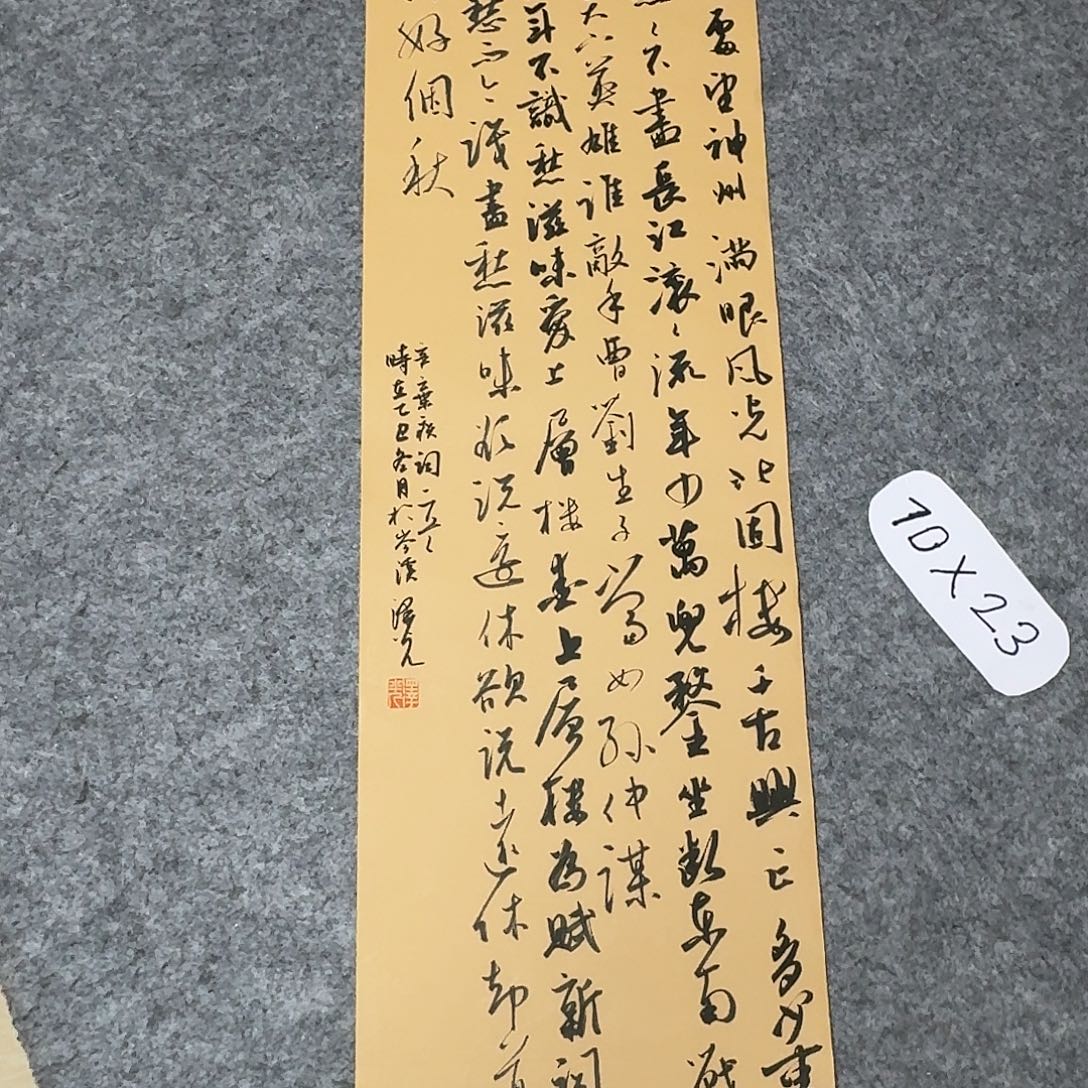 處望神州滿眼風光北固樓千古興亡多少事
不盡長江滾滾流年少萬兜鍪坐斷東南戰
英雄誰敵手曹劉生子當如孫仲謀
年不識愁滋味愛上層樓愛上層樓為賦新詞
愁而今識盡愁滋味欲說還休欲說還休却道
好個秋
辛棄疾詞二首
時在乙巳冬月於岑溪
10X23